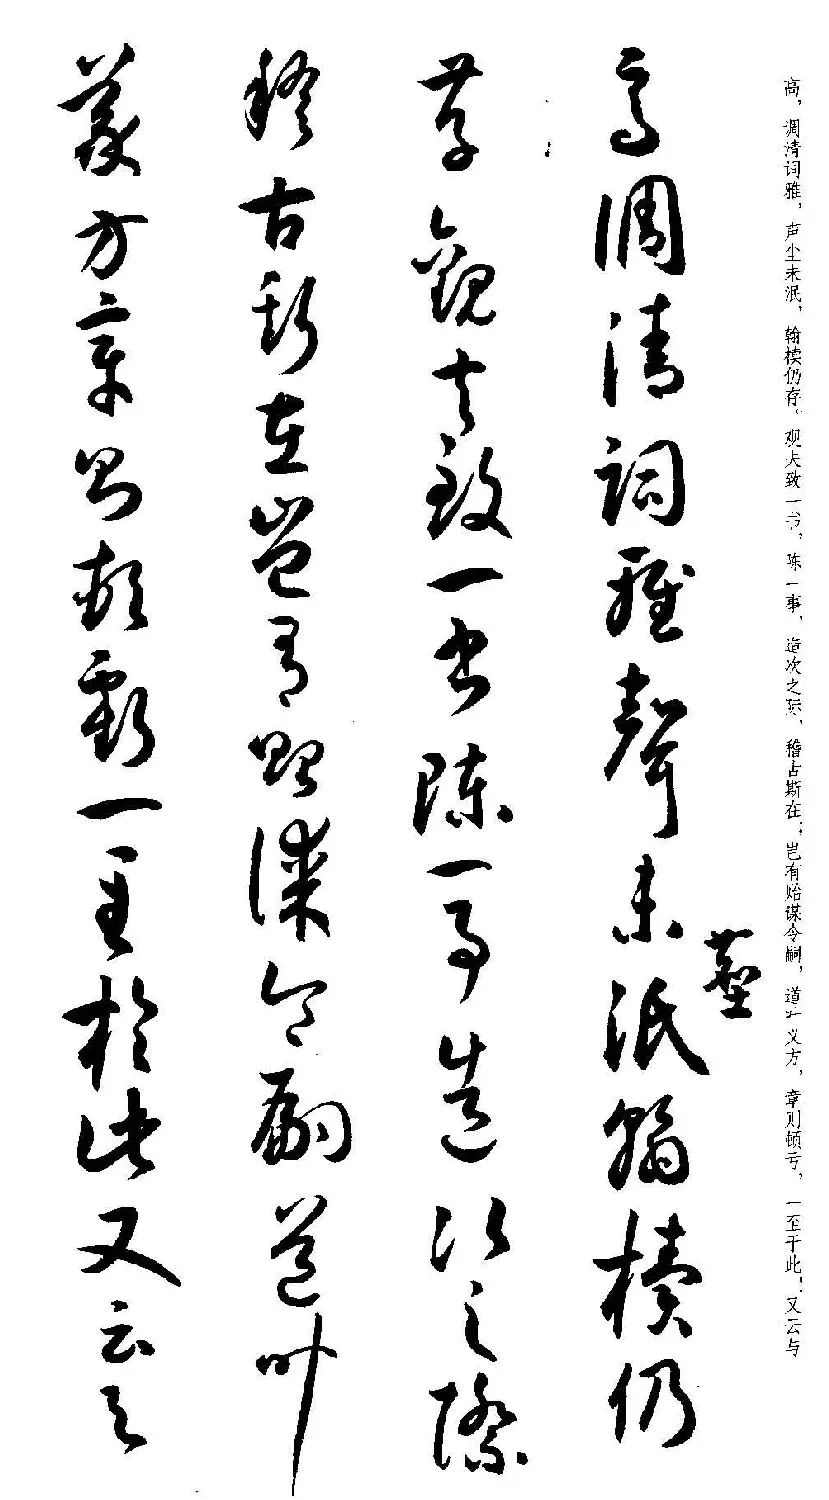 高，调清词雅，声尘未泯，翰椟仍存。观夫致一书，陈一事，造次之际，稽古斯在；岂有贻谋令嗣，道叶义方，章则顿亏，一至于此！又云与
高調清詞雅聲未泯翰櫝仍
塵
存觀夫致一書陳一事造次之際
稽古斯在豈有貽謀令嗣道叶
義方章則頓虧一至於此又云与